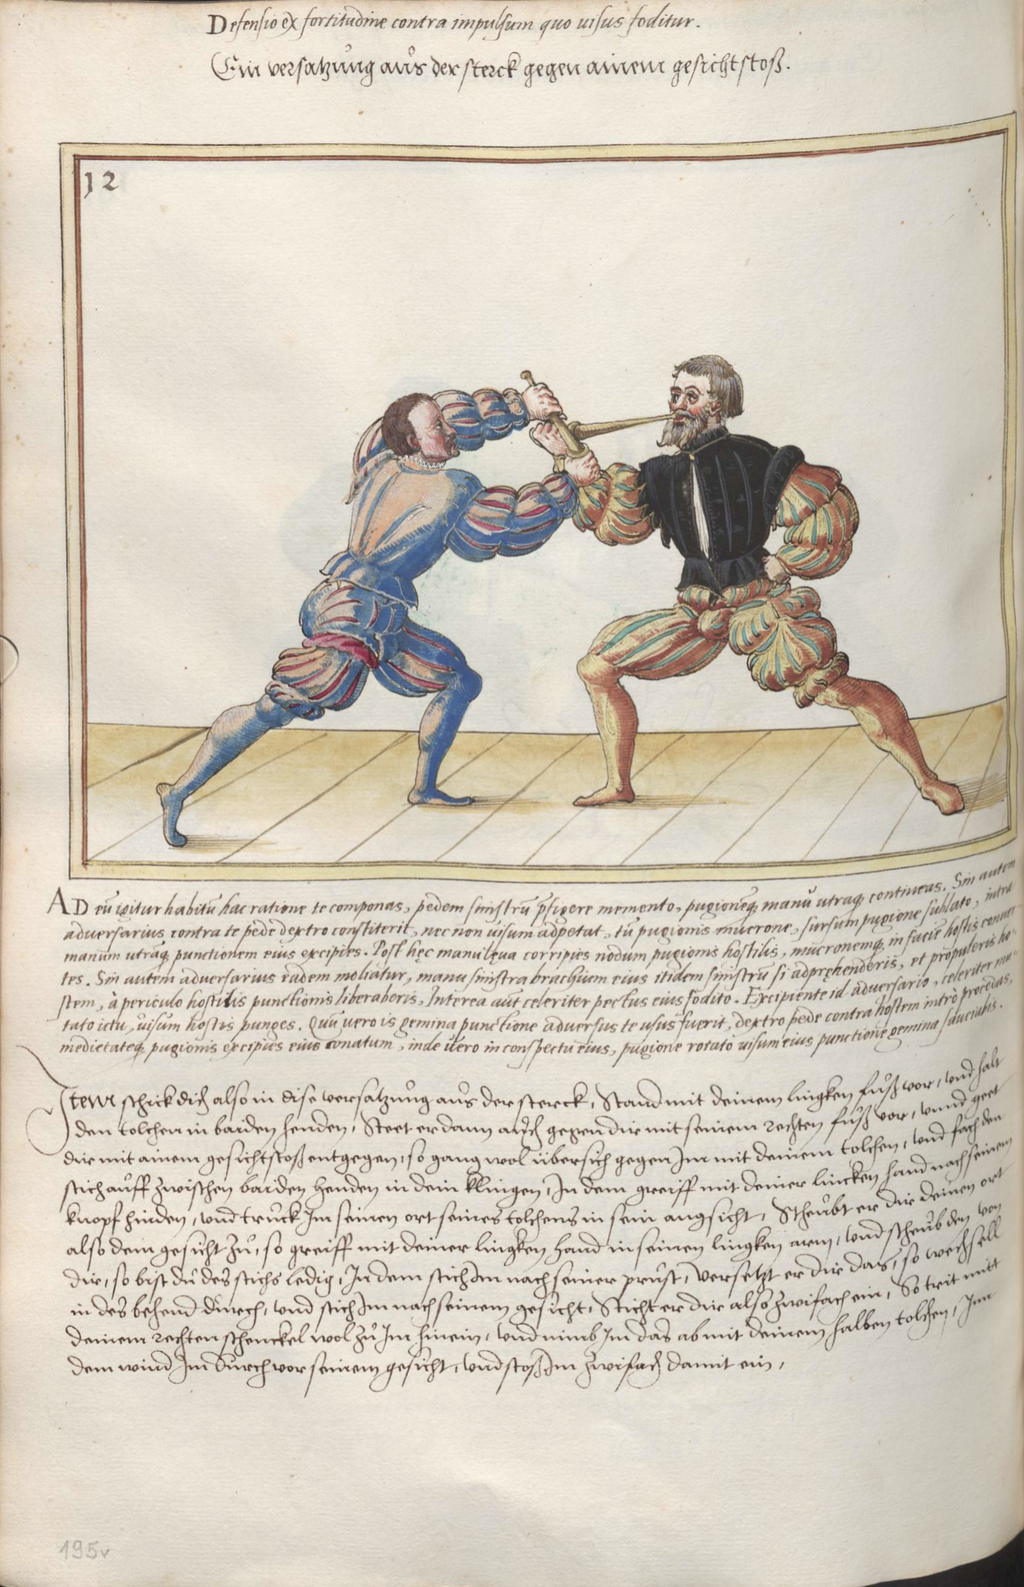 Defensio ex fortitudine contra impulsum quo uisus foditur.
Ein versatzung aus der sterck gegen ainem gesicht stoß.
12
AD eũ igitur habitũ hac ratione te componas, pedem sinistrũ p̃figere memento, pugionẽq; manu utraq; contineas. Sin autem
aduersarius contra te pede dextro constiterit, nec non uisum adpetat, tũ pugionis mucrone, sursum pugione sublato, intra
manum utrãq; punctionem eius excipies. Post hec manu leua corripies nodum pugionis hostilis, mucronemq; in facie hostis conuer
tes. Sin autem aduersarius eadem moliatur, manu sinistra brachium eius itidem sinistrũ si adprehenderis, et propuleris ho
stem, à periculo hostilis punctionis liberaberis, Interea aũt celeriter pectus eius fodito. Excipiente id aduersario, celeriter mu
tato ictu, uisum hostis punges. Quũ uero is gemina punctione aduersus te usus fuerit, dextro pede contra hostem intrò procedas,
medietateq; pugionis excipies eius conatum, inde uero in conspectu eius, pugione rotato uisum eius punctione gemina sauciabis.
Item schick dich also in dise versatzung aus der sterck, Stand mit deinem lingken fuß vor, vnd halt
den tolchen in baiden henden, Steet er dann auch gegen dir mit seinem rechten fuß vor, vnnd geet
dir mit ainem gesicht stoß entgegen, so gang wol übersich gegen Im mit deinem tolchen, vnd fach den
stich auff zwischen baiden henden in dein klingen, In dem greiff mit deiner lincken hand nach seinem
knopf hinden, vnd truck Im seinen ort seines tolchens in sein angsicht, Scheubt er dir deinen ort
also dem gesicht zu, so greiff mit deiner lingken hand in seinen lingken arm, vnd scheub den von
dir, so bist du des stichs ledig, In dem stich Im nach seiner prust, Versetzt er dir das, so wechsell
in des behend durch, vnd stich Im nach seinem gesicht, Sticht er dir also zwifach ein, So trit mitt
deinem rechten schenckel wol zu Im hinein, vnd nimb Im das ab mit deinem halben tolchen, Inn
dem wind Im durch vor seinem gesicht, vnd stoß Im zwifach damit ein,
195v